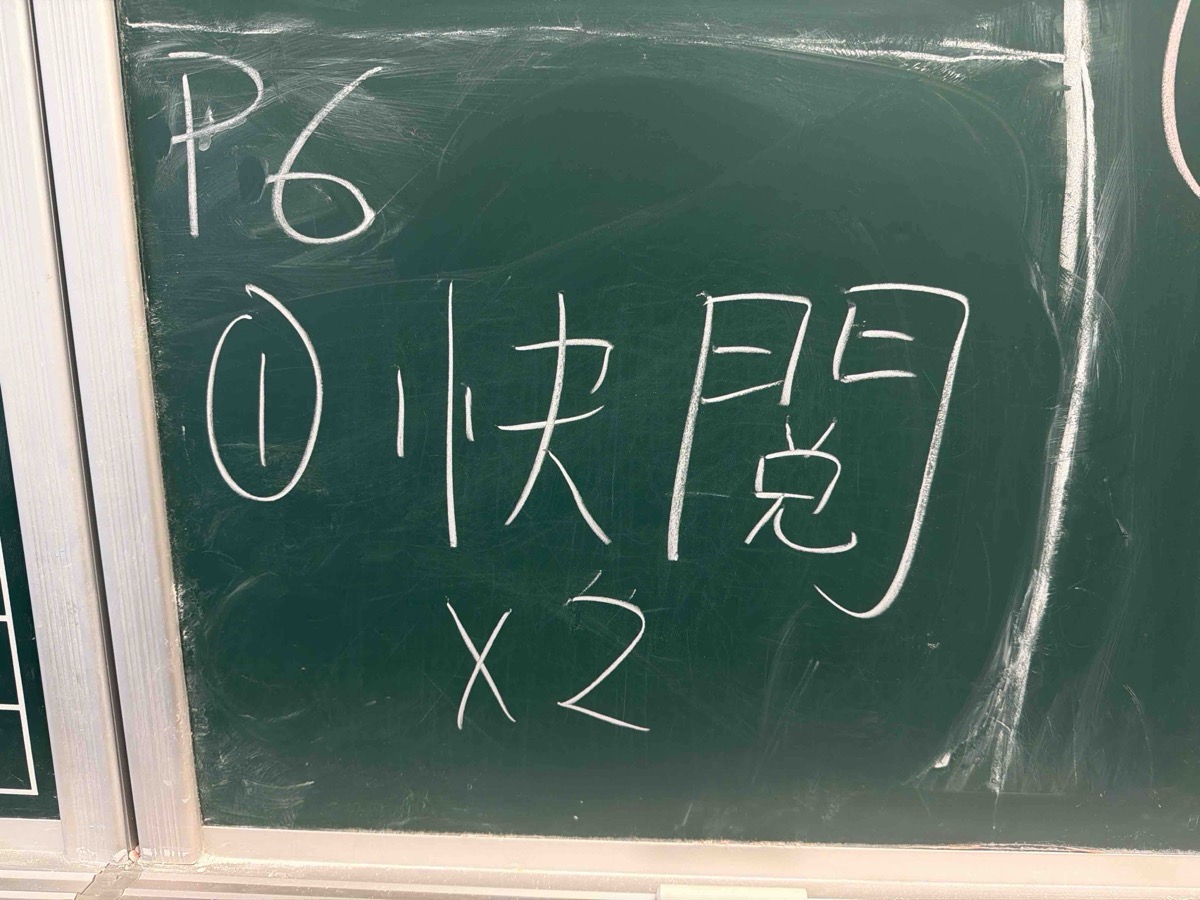 P6
① 快閱
x2